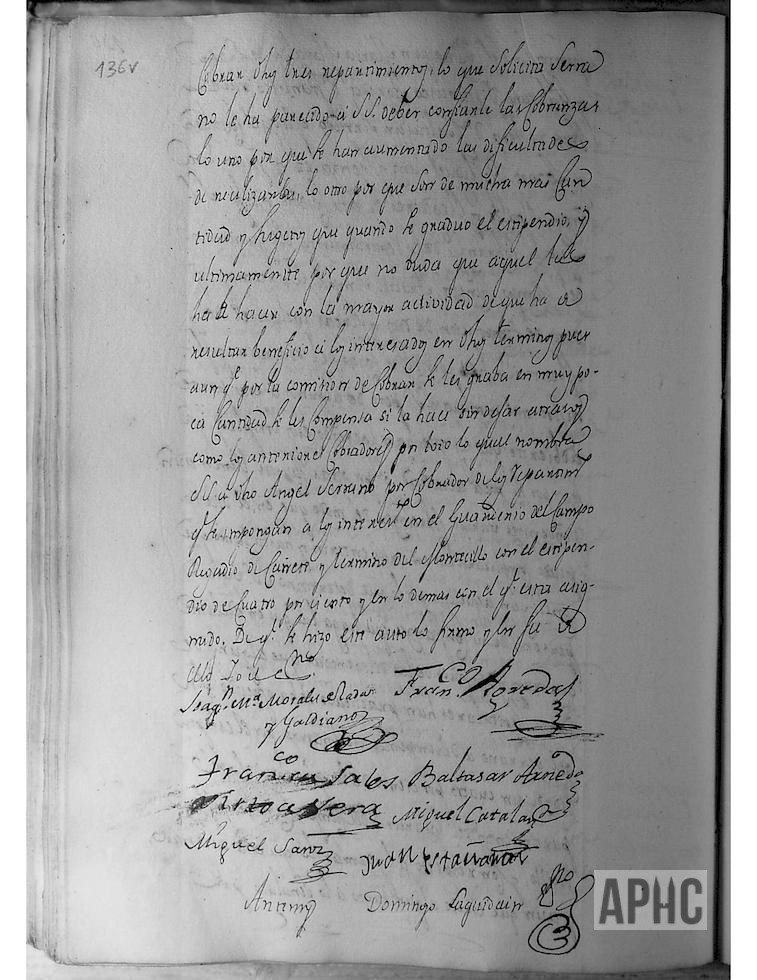 136v
Cobran dhos tres repartimientos, lo que solicita Serra
no le ha parecido a S.S. deber confiarle las Cobranzas
lo uno por que se han aumentado las dificultades
de realizarlas, lo otro por que son de mucha mas Can
tidad y sugetos que quando se graduo el estipendio, y
ultimamente por que no duda que aquel las
ha de hacer con la mayor actividad de que ha de
resultar beneficio a los interesados en dhos terminos pues
aun qe por la comision de Cobrar se les graba en muy po-
ca Cantidad se les Compensa si la hace sin dejar atrasos
como los anteriores Cobradores por todo lo qual nombra
S.S. a dho Angel Serrano por Cobrador de los Repartim
qe se impongan a los interes en el Guardenio del Campo
Regadio de Cairete, y termino del Montecillo con el estipen-
dio de Cuatro por ciento y en lo demas con el qe esta asig-
nado. De qe se hizo este auto lo firmo y en fe de
ello Yo el Esno
Joaqn Ma Morales de Rada
y Galdiano
Franco
Francco Sales
Baltasar
Miguel Catalan
Miguel Sanz
Juan
Antemi
Domingo Laquidain
APHC